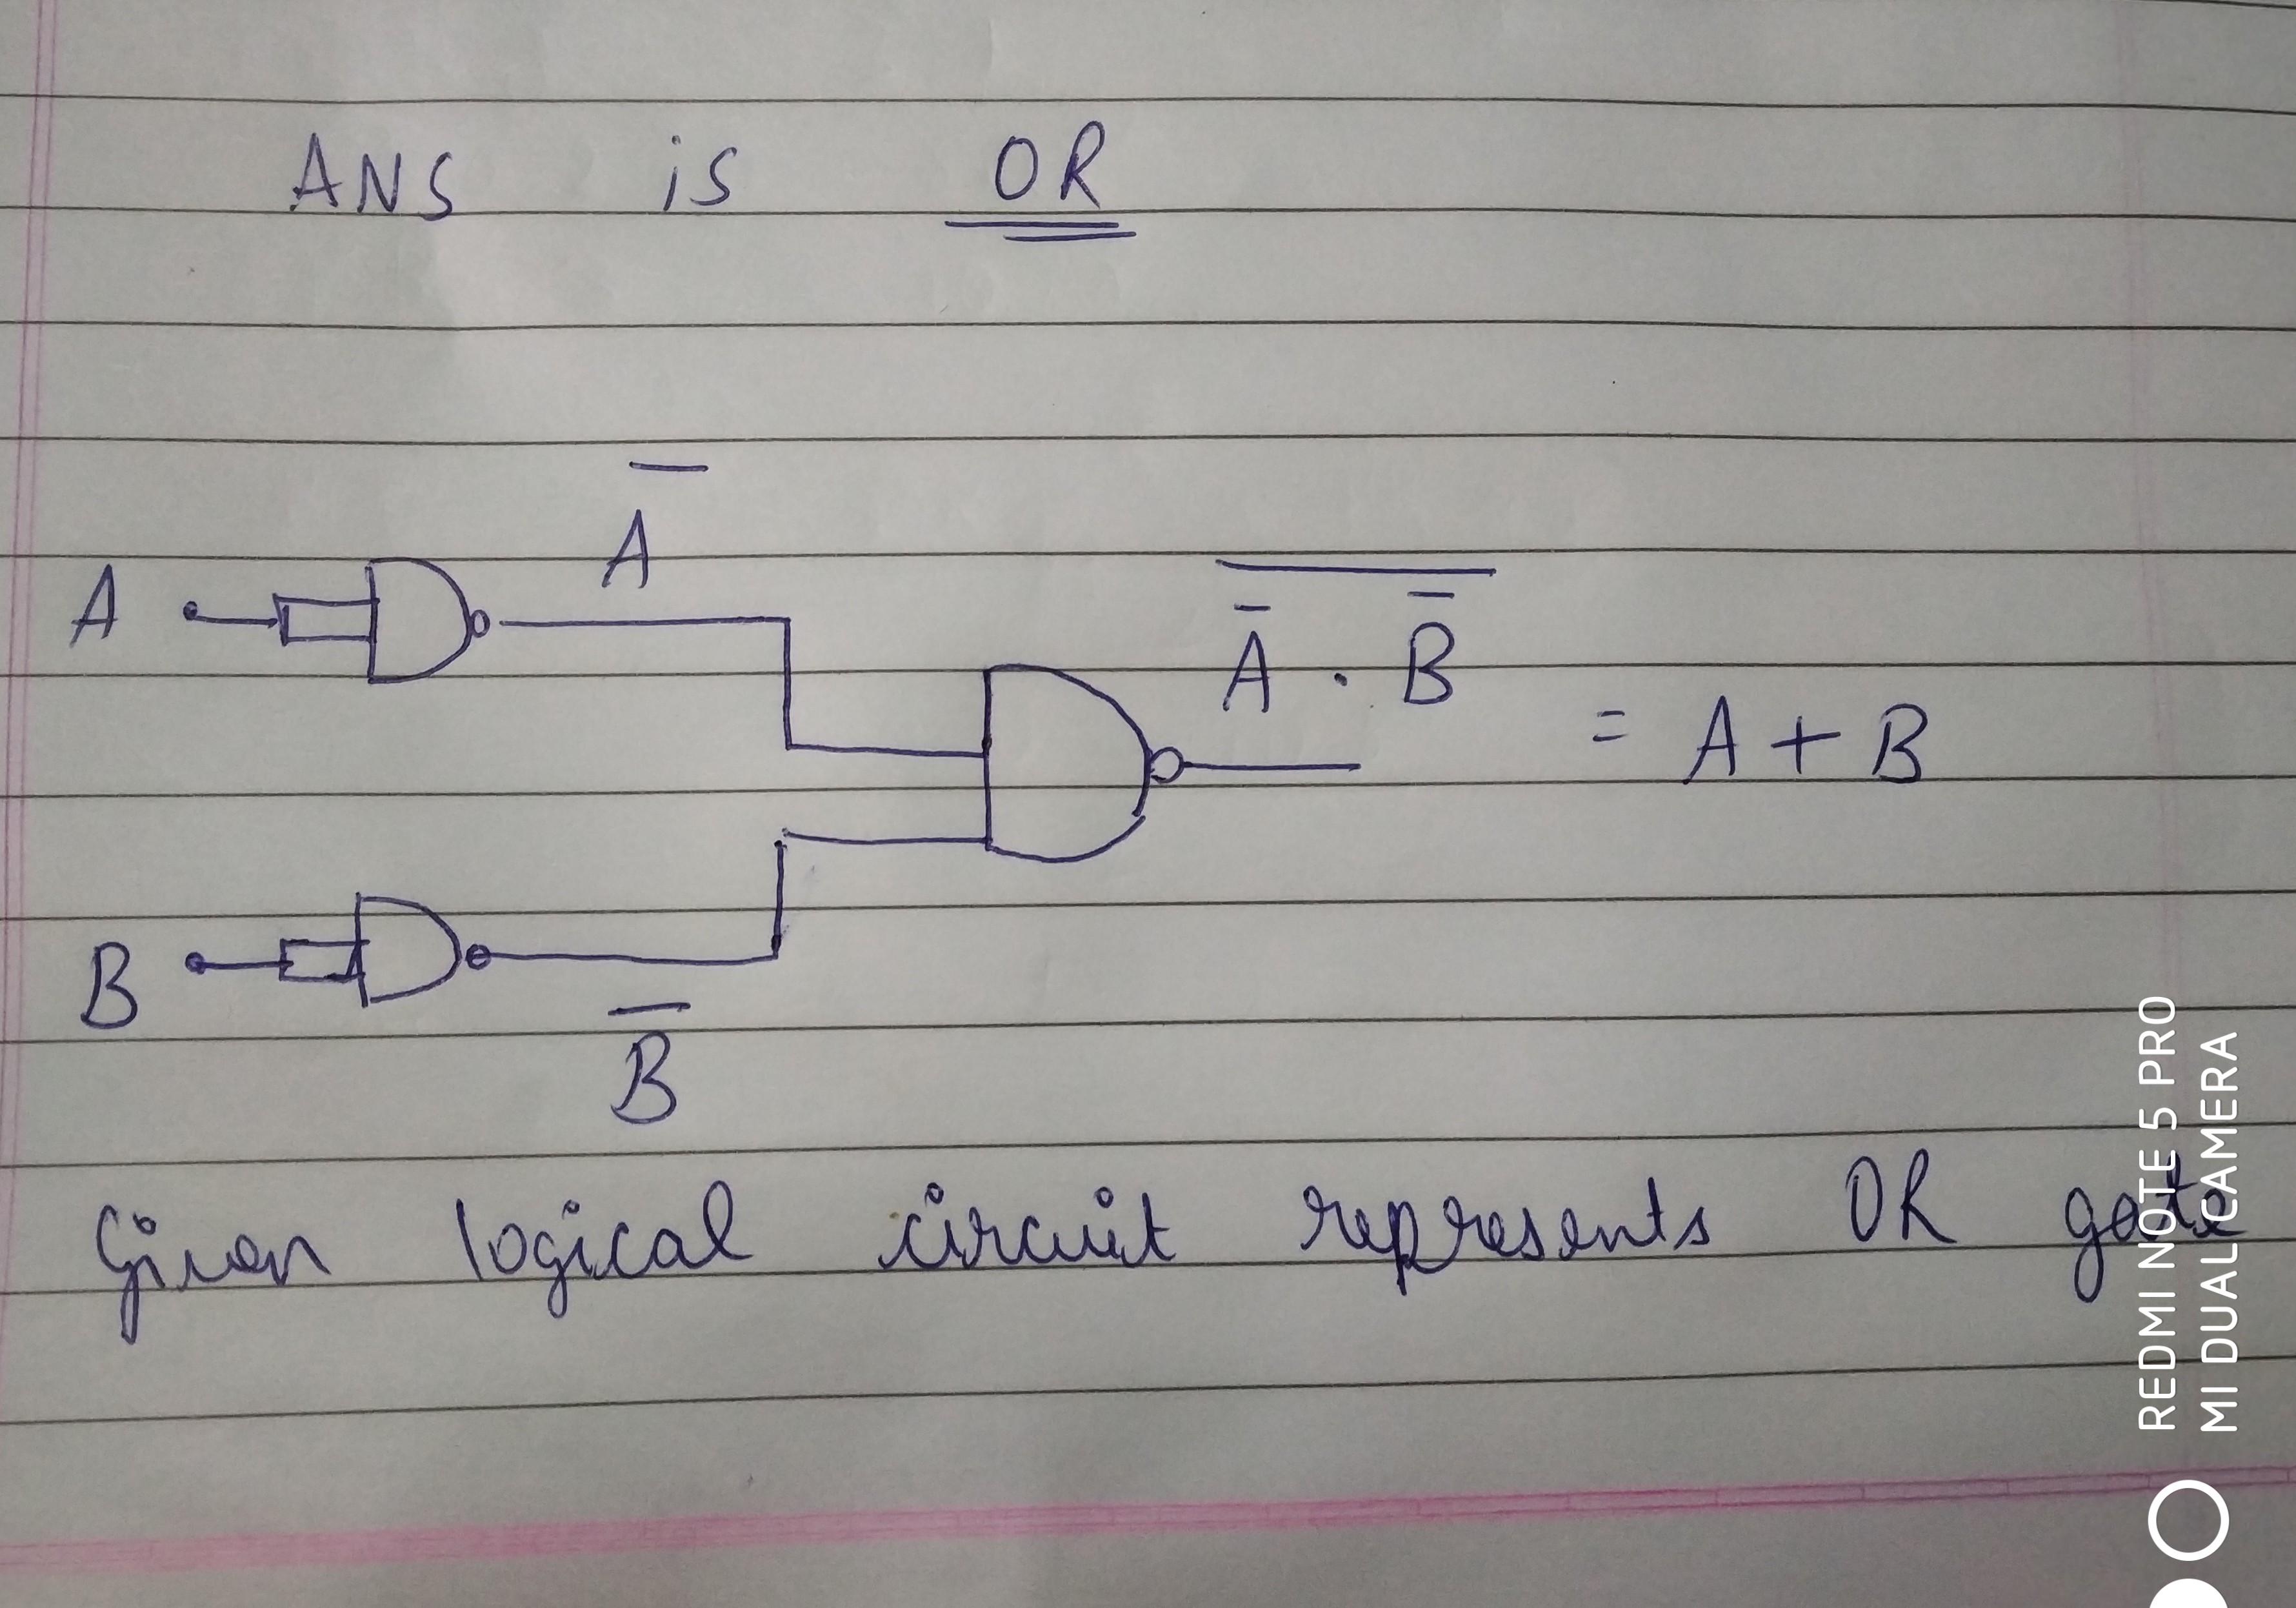 ANS is OR
A
A̅
B
B̅
\overline{A̅ . B̅} = A + B
Given logical circuit represents OR gate
REDMI NOTE 5 PRO
MI DUAL CAMERA